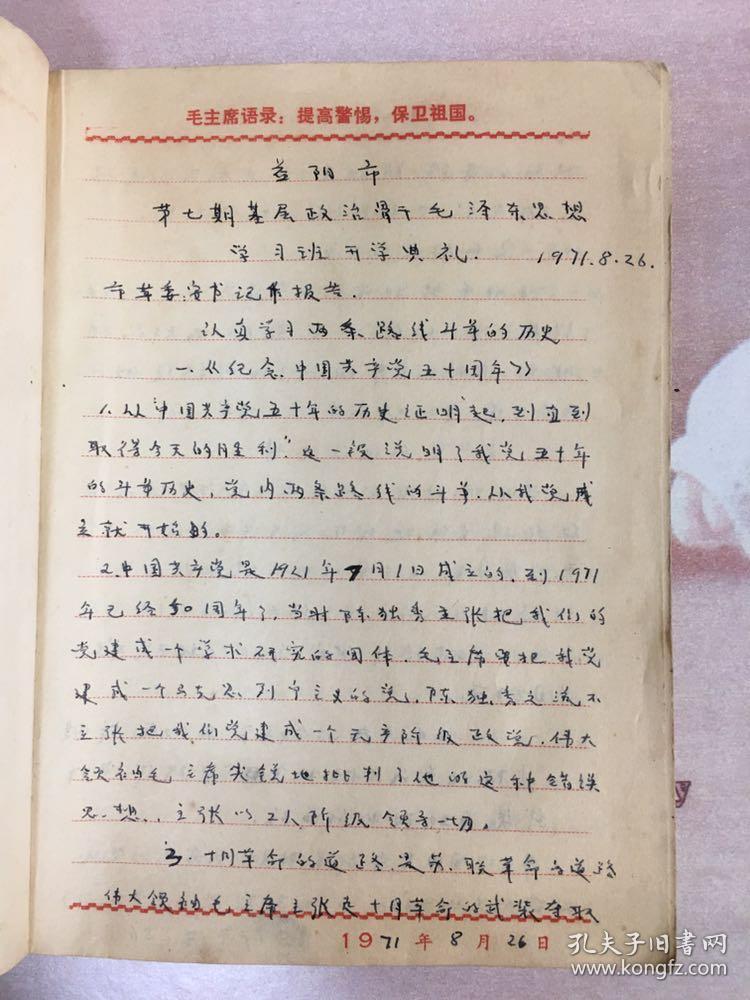 毛主席语录：提高警惕，保卫祖国。
益阳市
第七期基层政治骨干毛泽东思想
学习班开学典礼. 1971.8.26.
市革委,安书记作报告.
认真学习两条路线斗争的历史
一.《纪念.中国共产党五十周年》
1.从“中国共产党五十年的历史证明”起,到直到
取得今天的胜利”这一段说明了我党五十年
的斗争历史,党内两条路线的斗争.从我党成
立就开始的。
2.中国共产党是1921年7月1日成立的,到1971
年已经50周年了,当时陈独秀主张把我们的
党建成一个学术研究的团体.毛主席要把我党
建成一个马克思列宁主义的党,陈独秀之流不
主张把我们党建成一个无产阶级政党.伟大
领袖毛主席尖锐地批判了他的这种错误
思想.,主张以工人阶级领导一切。
3.十月革命的道路.是苏.联革命的道路
伟大领袖毛主席主张走十月革命的武装夺取
1971年8月26日
孔夫子旧书网
www.kongfz.com